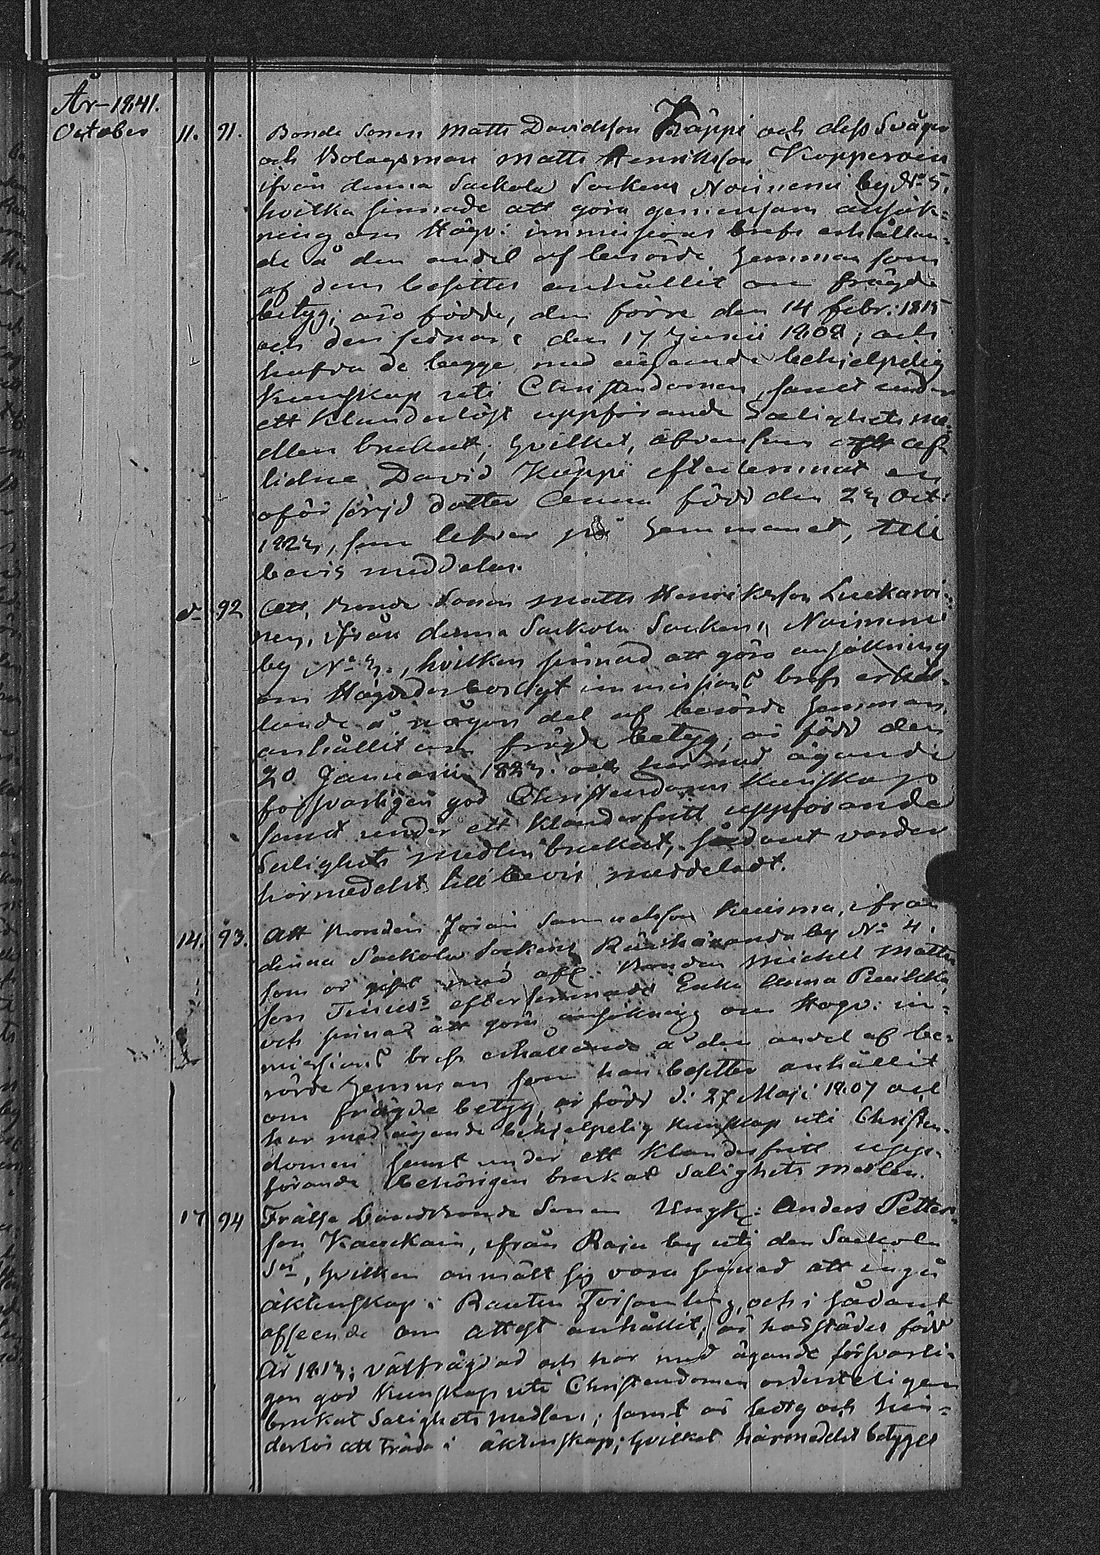 År 1841.
October 11. 91. Bonde Sonen Matts Davidsson Käppi och dess Svåger
och Bolagsman Matts Henriksson Kopperoin
ifrån denna Sackola Sockens Noisniemi by № 5.
hvilka sinnade att göra gemensam ansök-
ning om Högv: immissions brefs erhållan-
de å den andel af berörde Hemman som
af dem besittes anhållit om frägde
betyg; äro födde, den förre den 14 febr. 1815
och den sednare den 17 Junii 1808; och
hafva de begge med ägande behjelpelig
kunskap uti Christendomen samt under
ett klanderlöst uppförande Salighets me-
dlen brukat; hvilket, äfvensom att af-
lidne David Käppi efterlemnat en
oförsörjd dotter Anna född den 23 Oct:
1823, som lefver på Hemmanet, till
bevis meddelas.
d- 92 Att, Bonde Sonen Matts Henriksson Luukavoi-
nen, ifrån denna Sackola Sockens Noisniemi
by № 3., hvilken sinnad att göra ansökning
om Högvederbörligt immissions brefs erhål-
lande å någon del af berörde Hemman,
anhållit om frägde betyg, är född den
20 Januarii 1823. och har med ägande
försvarligen god Christendoms kunskap
samt under ett klanderfritt uppförande
Salighets medlen brukat, sådant varder
härmedelst till bevis meddeladt.
14. 93. Att Bonden Jöran Samuelsson Kuisma, ifrån
denna Sackola Sockens by № 4.
som är gift med afl: Bonden Michel Matts-
son efterlemnade Enka Anna
och sinnad att göra ansökning om Högv: im-
missions brefs erhållande å den andel af be-
rörde Hemman som han besitter anhållit
om frägde betyg, är född d: 27 Maji 1807 och
har med ägande behjelpelig kunskap uti Christen-
domen samt under ett klanderfritt upp-
förande behörigen brukat Salighets medlen.
17 94 Frälse Landbonde Sonen Ungk: Anders Petters-
son Kauckain, ifrån Raju by uti den Sackola
Sn, hvilken anmält sig vara sinnad att ingå
äktenskap i Rautu Församling, och i sådant
afseende om attest anhållit, är härstädes född
År 1813; välfrägdad och har med ägande försvarli-
gen god kunskap uti Christendomen ordenteligen
brukat Salighets medlen; samt är ledig och hin-
derlös att träda i äktenskap; hvilket härmedelst betygas